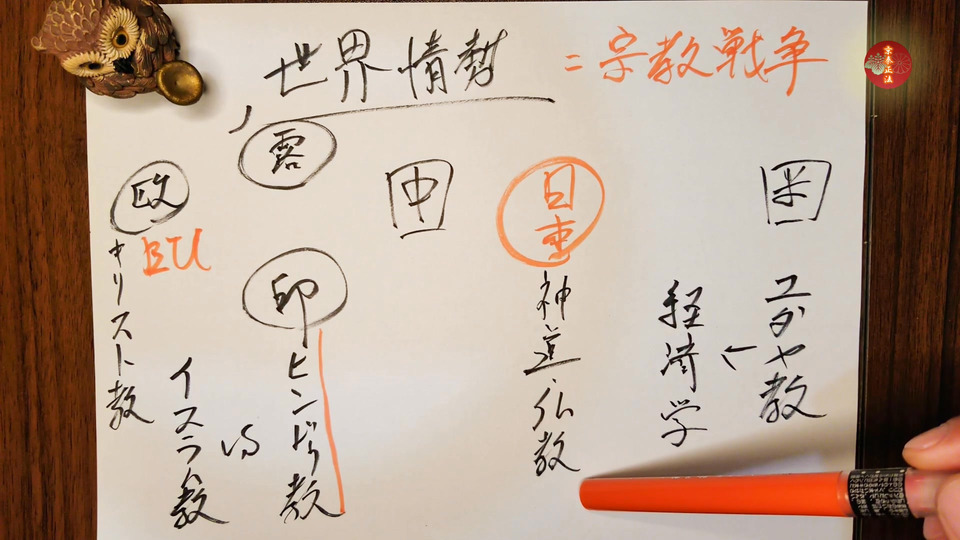 世界情勢
=宗教戦争
露
欧
EU
キリスト教
中
印
ヒンドゥ教
vs
イスラム教
日
神道・仏教
米
ユダヤ教
←
経済学